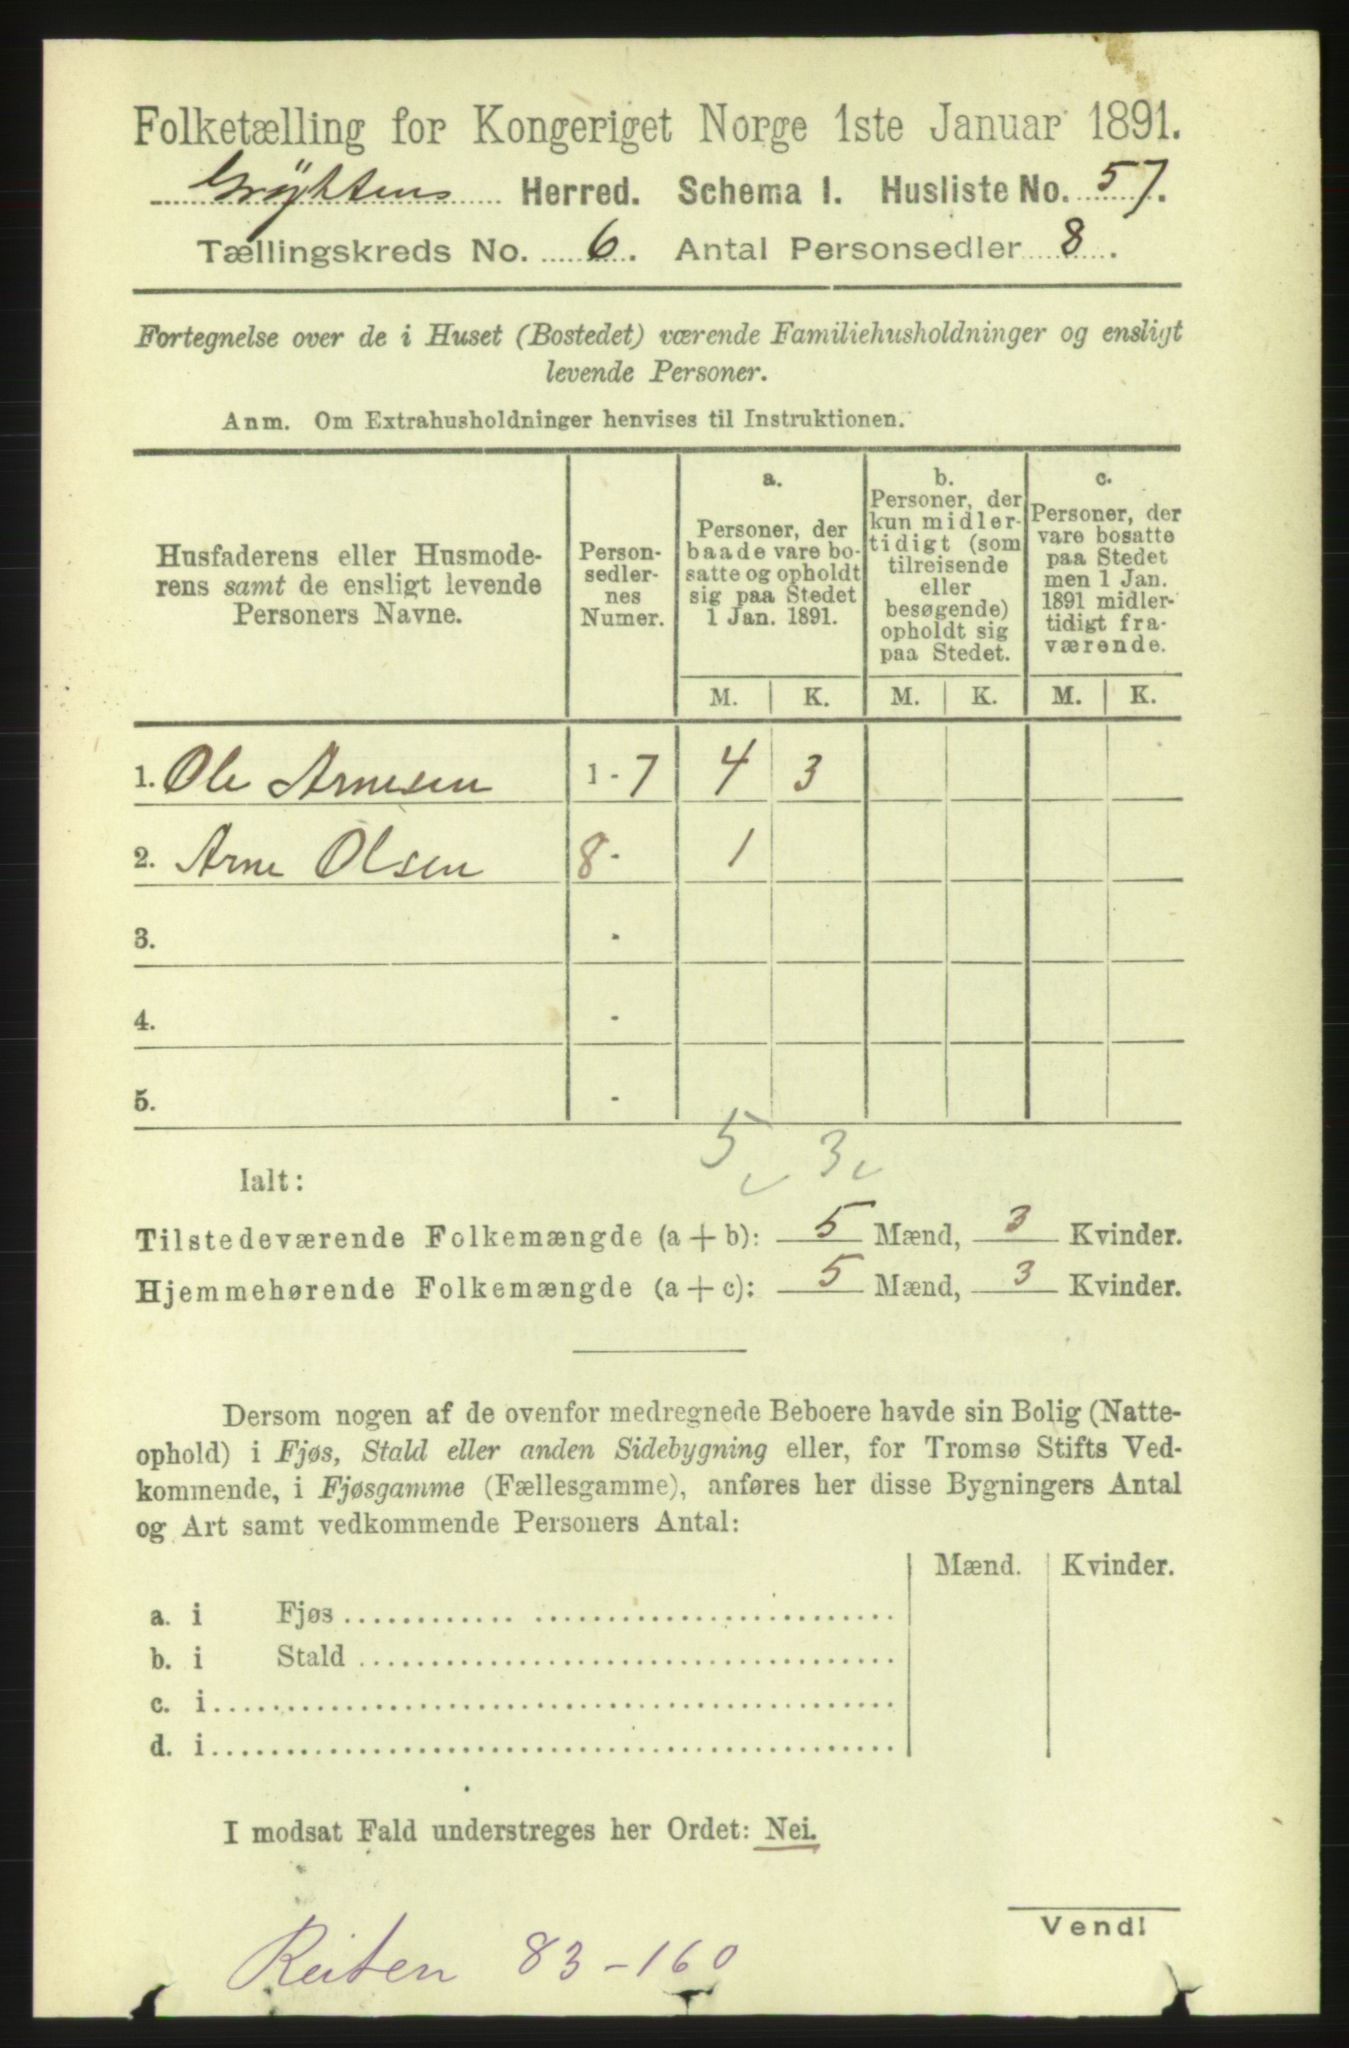 Folketælling for Kongeriget Norge 1ste Januar 1891.
Grøjtens Herred. Schema I. Husliste No. 57.
Tællingskreds No. 6. Antal Personsedler 8.
Fortegnelse over de i Huset (Bostedet) værende Familiehusholdninger og ensligt
levende Personer.
Anm. Om Extrahusholdninger henvises til Instruktionen.
Husfaderens eller Husmode-
rens samt de ensligt levende
Personers Navne.
Person-
sedler-
nes
Numer.
a.
Personer, der
baade vare bo-
satte og opholdt
sig paa Stedet
1 Jan. 1891.
b.
Personer, der
kun midler-
tidigt (som
tilreisende
eller
besøgende)
opholdt sig
paa Stedet.
c.
Personer, der
vare bosatte
paa Stedet
men 1 Jan.
1891 midler-
tidigt fra-
værende.
M. K. M. K. M. K.
1. Ole Arnesen 1 - 7 4 3
2. Arne Olsen 8 - 1
3. -
4. -
5. -
5 3
Ialt:
Tilstedeværende Folkemængde (a + b): 5 Mænd, 3 Kvinder.
Hjemmehørende Folkemængde (a + c): 5 Mænd, 3 Kvinder.
Dersom nogen af de ovenfor medregnede Beboere havde sin Bolig (Natte-
ophold) i Fjøs, Stald eller anden Sidebygning eller, for Tromsø Stifts Ved-
kommende, i Fjøsgamme (Fællesgamme), anføres her disse Bygningers Antal
og Art samt vedkommende Personers Antal:
Mænd. Kvinder.
a. i Fjøs
b. i Stald
c. i
d. i
I modsat Fald understreges her Ordet: Nei.
Vend!
Reiten 83-160